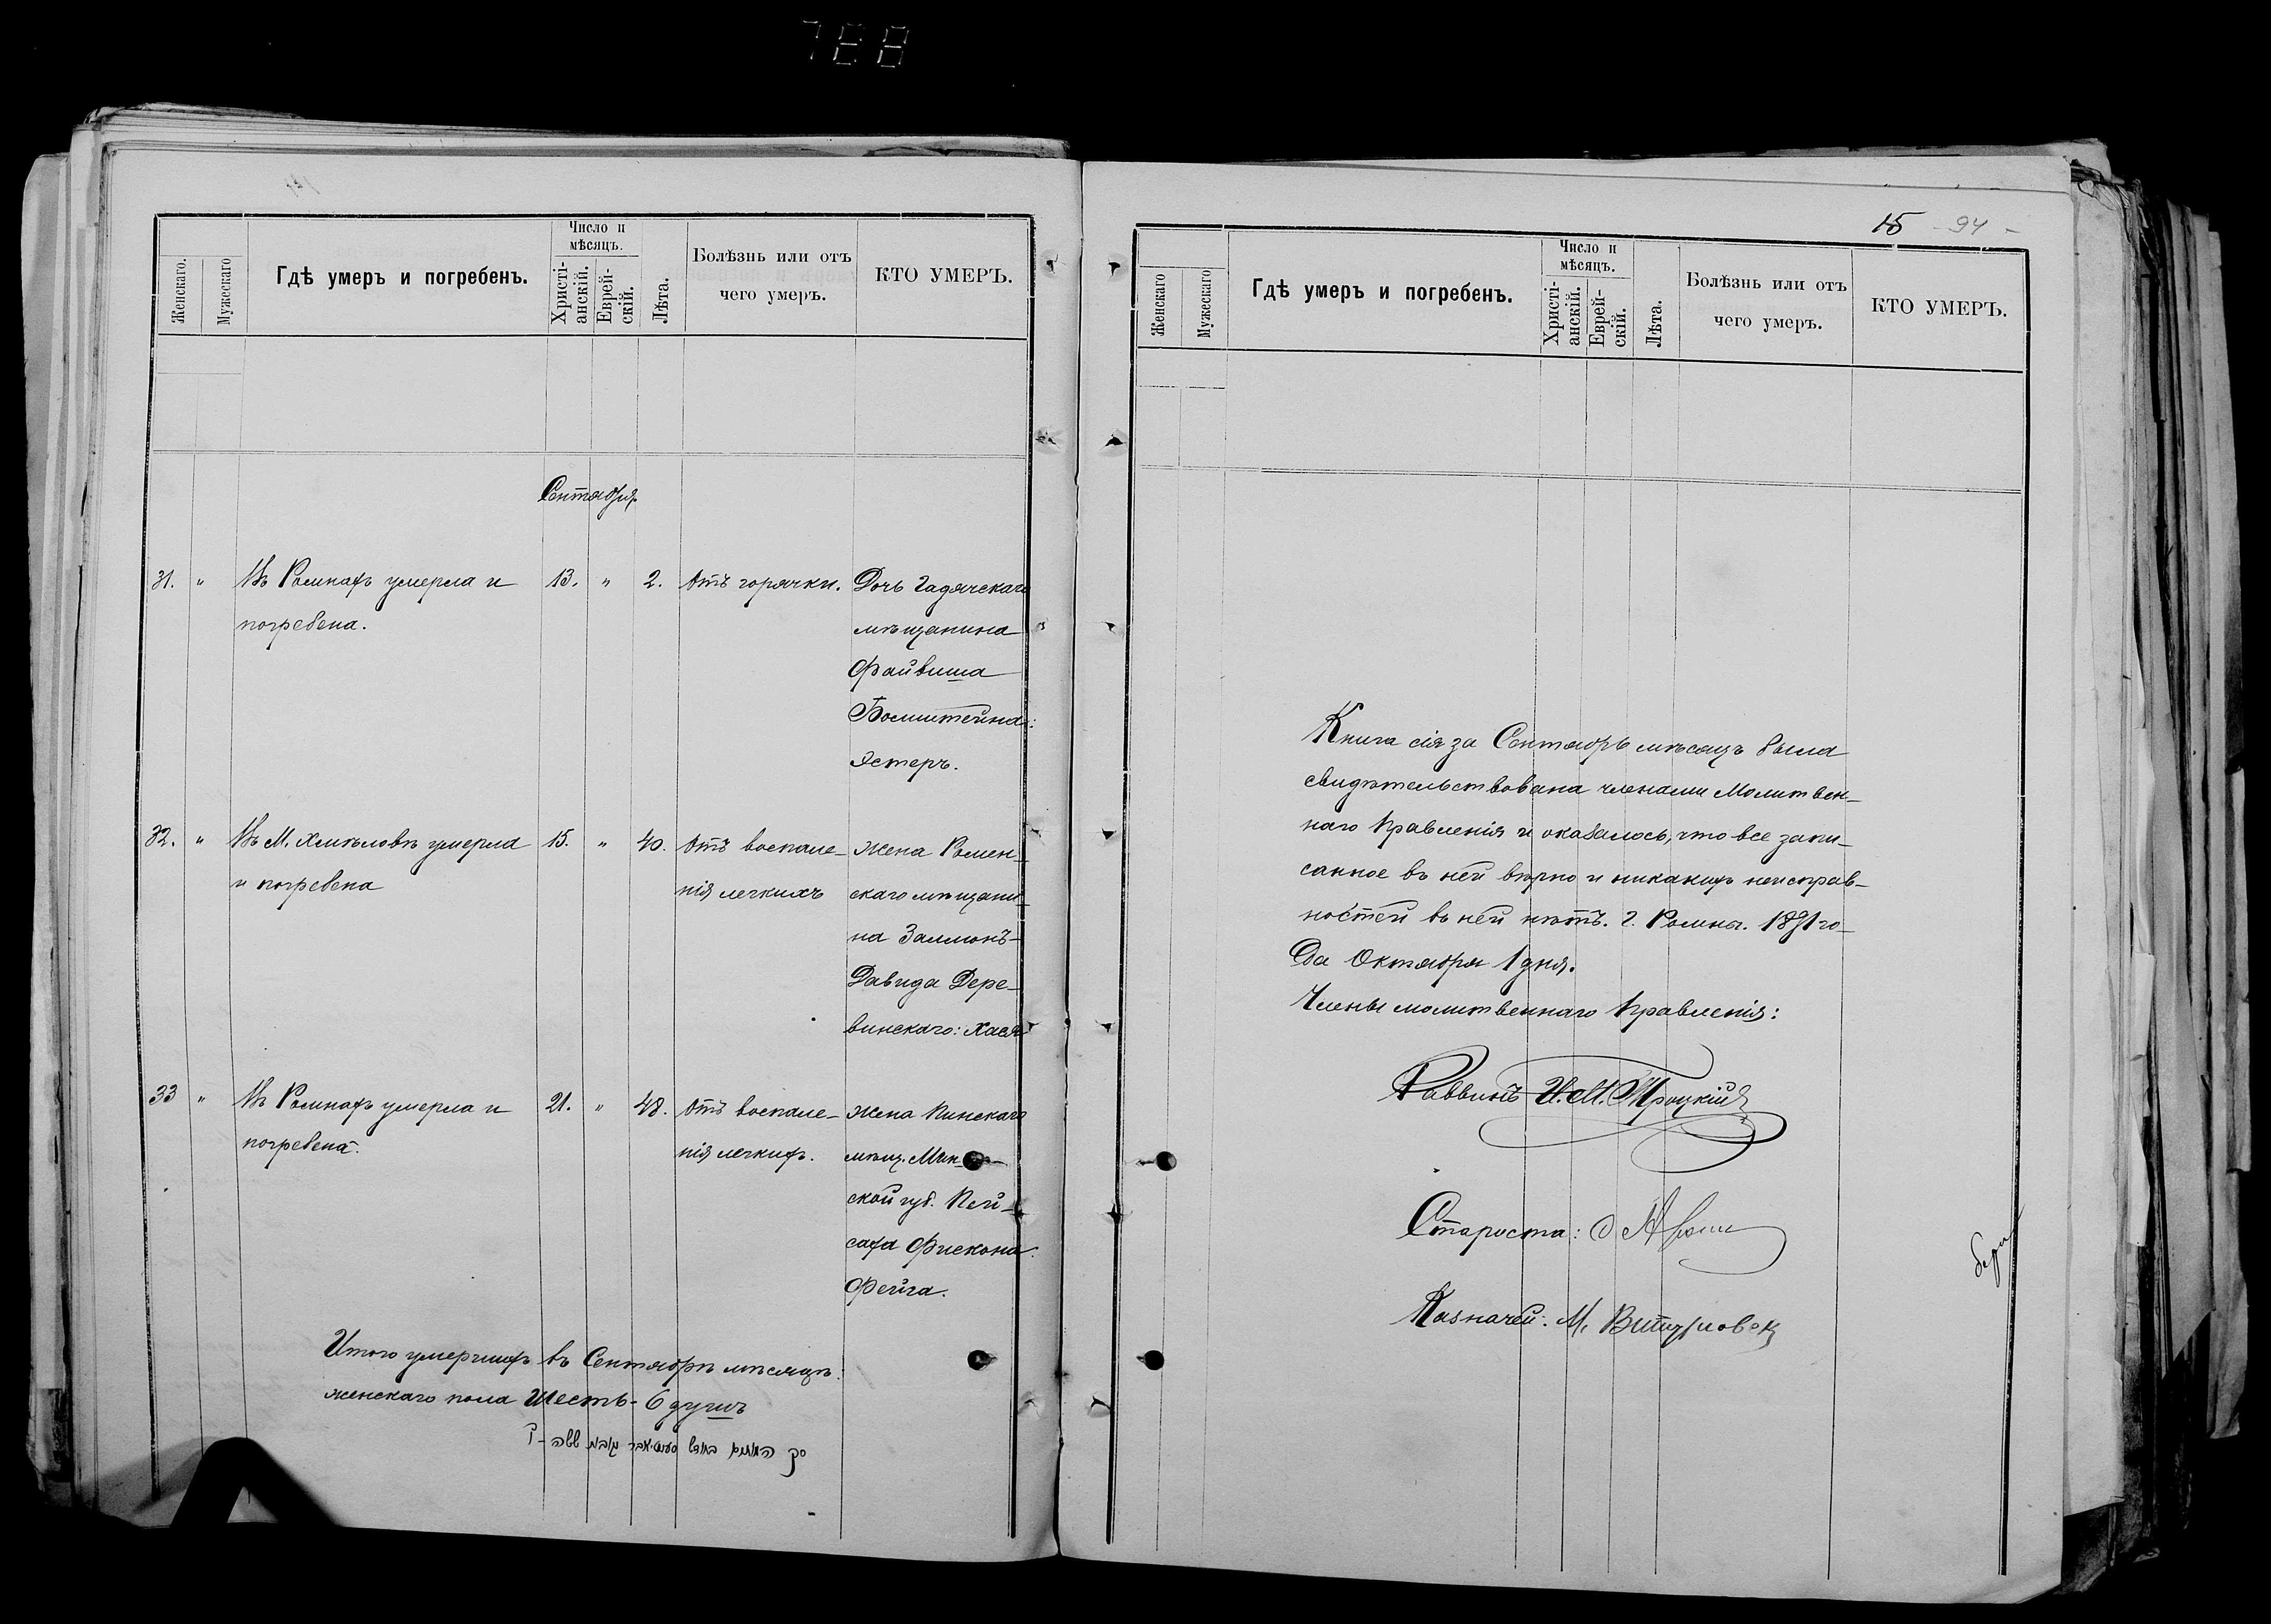 788
Женскаго.
Мужескаго
Гдѣ умеръ и погребенъ.
Число и
мѣсяцъ.
Христі-
анскій.
Еврей-
скій.
Лѣта.
Болѣзнь или отъ
чего умеръ.
КТО УМЕРЪ.
Сентября
31. " Въ Ромнахъ умерла и 13. " 2. Отъ горячки. Дочь Гадячскаго
погребена. мѣщанина
Файвиша
Бомштейна:
Эстеръ.
32. " Въ М. Хмѣловѣ умерла 15. " 40. Отъ воспале- жена Ромен-
и погребена нія легкихъ скаго мѣщани-
на Залмонъ-
Давида Дере-
винскаго: Хася
33 " Въ Ромнахъ умерла и 21. " 48. Отъ воспале- жена Пинскаго
погребена. нія легкихъ. мѣщ. Мин-
ской губ. Пей-
саха Фискона:
Фейга.
Итого умершихъ въ Сентябрѣ мѣсяцѣ:
женскаго пола Шесть - 6 душъ
15 - 94 -
Женскаго
Мужескаго
Гдѣ умеръ и погребенъ.
Число и
мѣсяцъ.
Христі-
анскій.
Еврей-
скій.
Лѣта.
Болѣзнь или отъ
чего умеръ.
КТО УМЕРЪ.
Книга сія за Сентябрь мѣсяцъ была
свидѣтельствована членами Молитвен-
наго Правленія и оказалось, что все запи-
санное въ ней вѣрно и никакихъ неисправ-
ностей въ ней нѣтъ. г. Ромны. 1891 го-
да Октября 1 дня.
Члены молитвеннаго Правленія:
Раввинъ И.М. Троцкій
Староста:
Казначей: М.